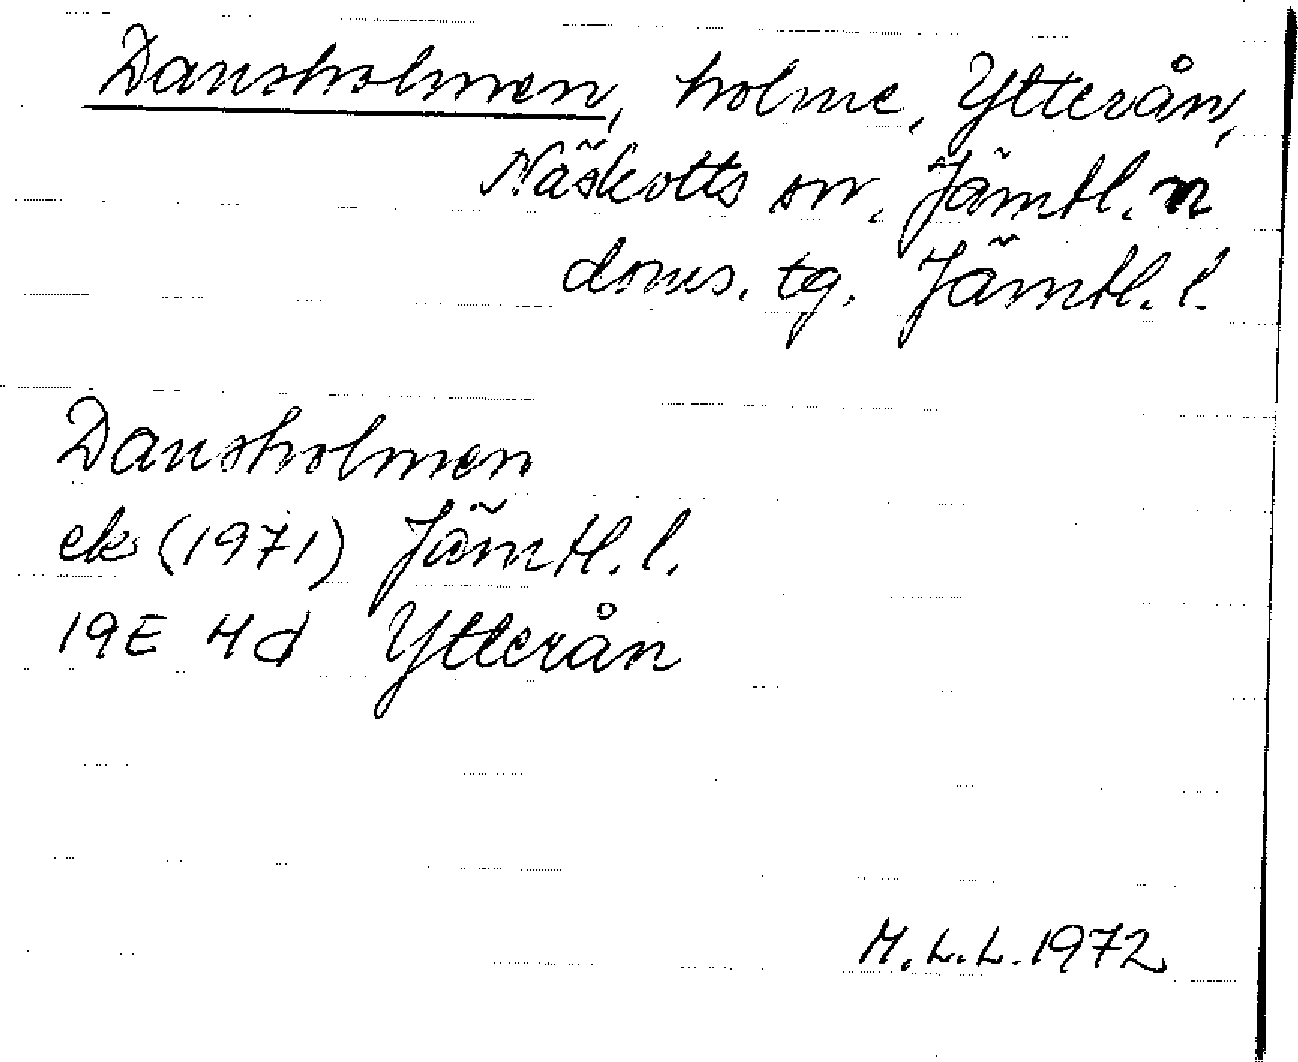 Dansholmen, holme, Ytterån,
Näskotts sn. Jämtl. n
doms. tg. Jämtl. l.
Dansholmen
ek (1971) Jämtl. l.
19E 4d Ytterån
M.L.L. 1972